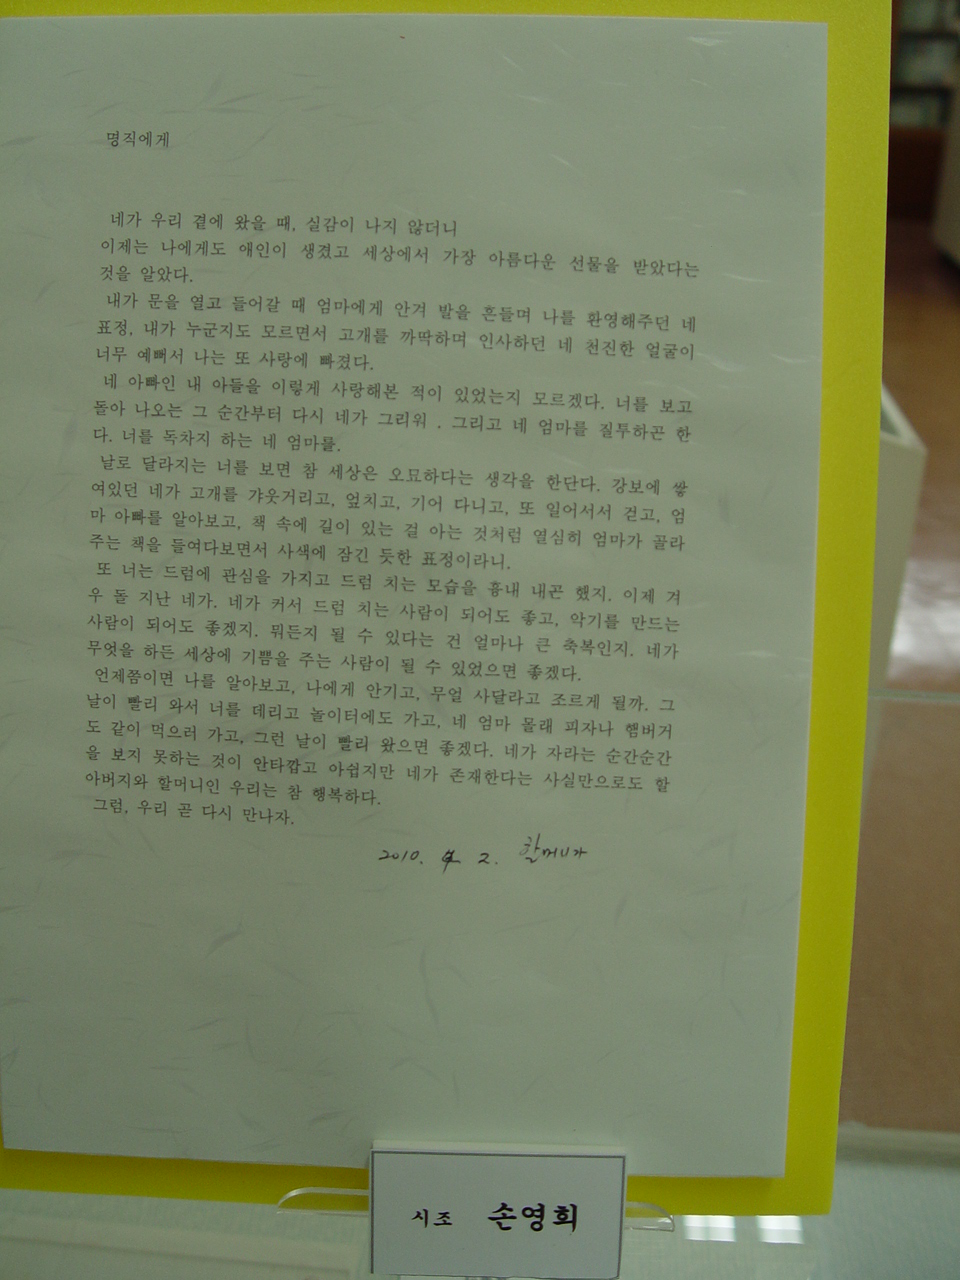 명직에게
네가 우리 곁에 왔을 때, 실감이 나지 않더니
이제는 나에게도 애인이 생겼고 세상에서 가장 아름다운 선물을 받았다는
것을 알았다.
내가 문을 열고 들어갈 때 엄마에게 안겨 발을 흔들며 나를 환영해주던 네
표정, 내가 누군지도 모르면서 고개를 까딱하며 인사하던 네 천진한 얼굴이
너무 예뻐서 나는 또 사랑에 빠졌다.
네 아빠인 내 아들을 이렇게 사랑해본 적이 있었는지 모르겠다. 너를 보고
돌아 나오는 그 순간부터 다시 네가 그리워 . 그리고 네 엄마를 질투하곤 한
다. 너를 독차지 하는 네 엄마를.
날로 달라지는 너를 보면 참 세상은 오묘하다는 생각을 한단다. 강보에 쌓
여있던 네가 고개를 갸웃거리고, 엎치고, 기어 다니고, 또 일어서서 걷고, 엄
마 아빠를 알아보고, 책 속에 길이 있는 걸 아는 것처럼 열심히 엄마가 골라
주는 책을 들여다보면서 사색에 잠긴 듯한 표정이라니.
또 너는 드럼에 관심을 가지고 드럼 치는 모습을 흉내 내곤 했지. 이제 겨
우 돌 지난 네가. 네가 커서 드럼 치는 사람이 되어도 좋고, 악기를 만드는
사람이 되어도 좋겠지. 뭐든지 될 수 있다는 건 얼마나 큰 축복인지. 네가
무엇을 하든 세상에 기쁨을 주는 사람이 될 수 있었으면 좋겠다.
언제쯤이면 나를 알아보고, 나에게 안기고, 무얼 사달라고 조르게 될까. 그
날이 빨리 와서 너를 데리고 놀이터에도 가고, 네 엄마 몰래 피자나 햄버거
도 같이 먹으러 가고, 그런 날이 빨리 왔으면 좋겠다. 네가 자라는 순간순간
을 보지 못하는 것이 안타깝고 아쉽지만 네가 존재한다는 사실만으로도 할
아버지와 할머니인 우리는 참 행복하다.
그럼, 우리 곧 다시 만나자.
2010. 2. 할머니가
시조 손영희